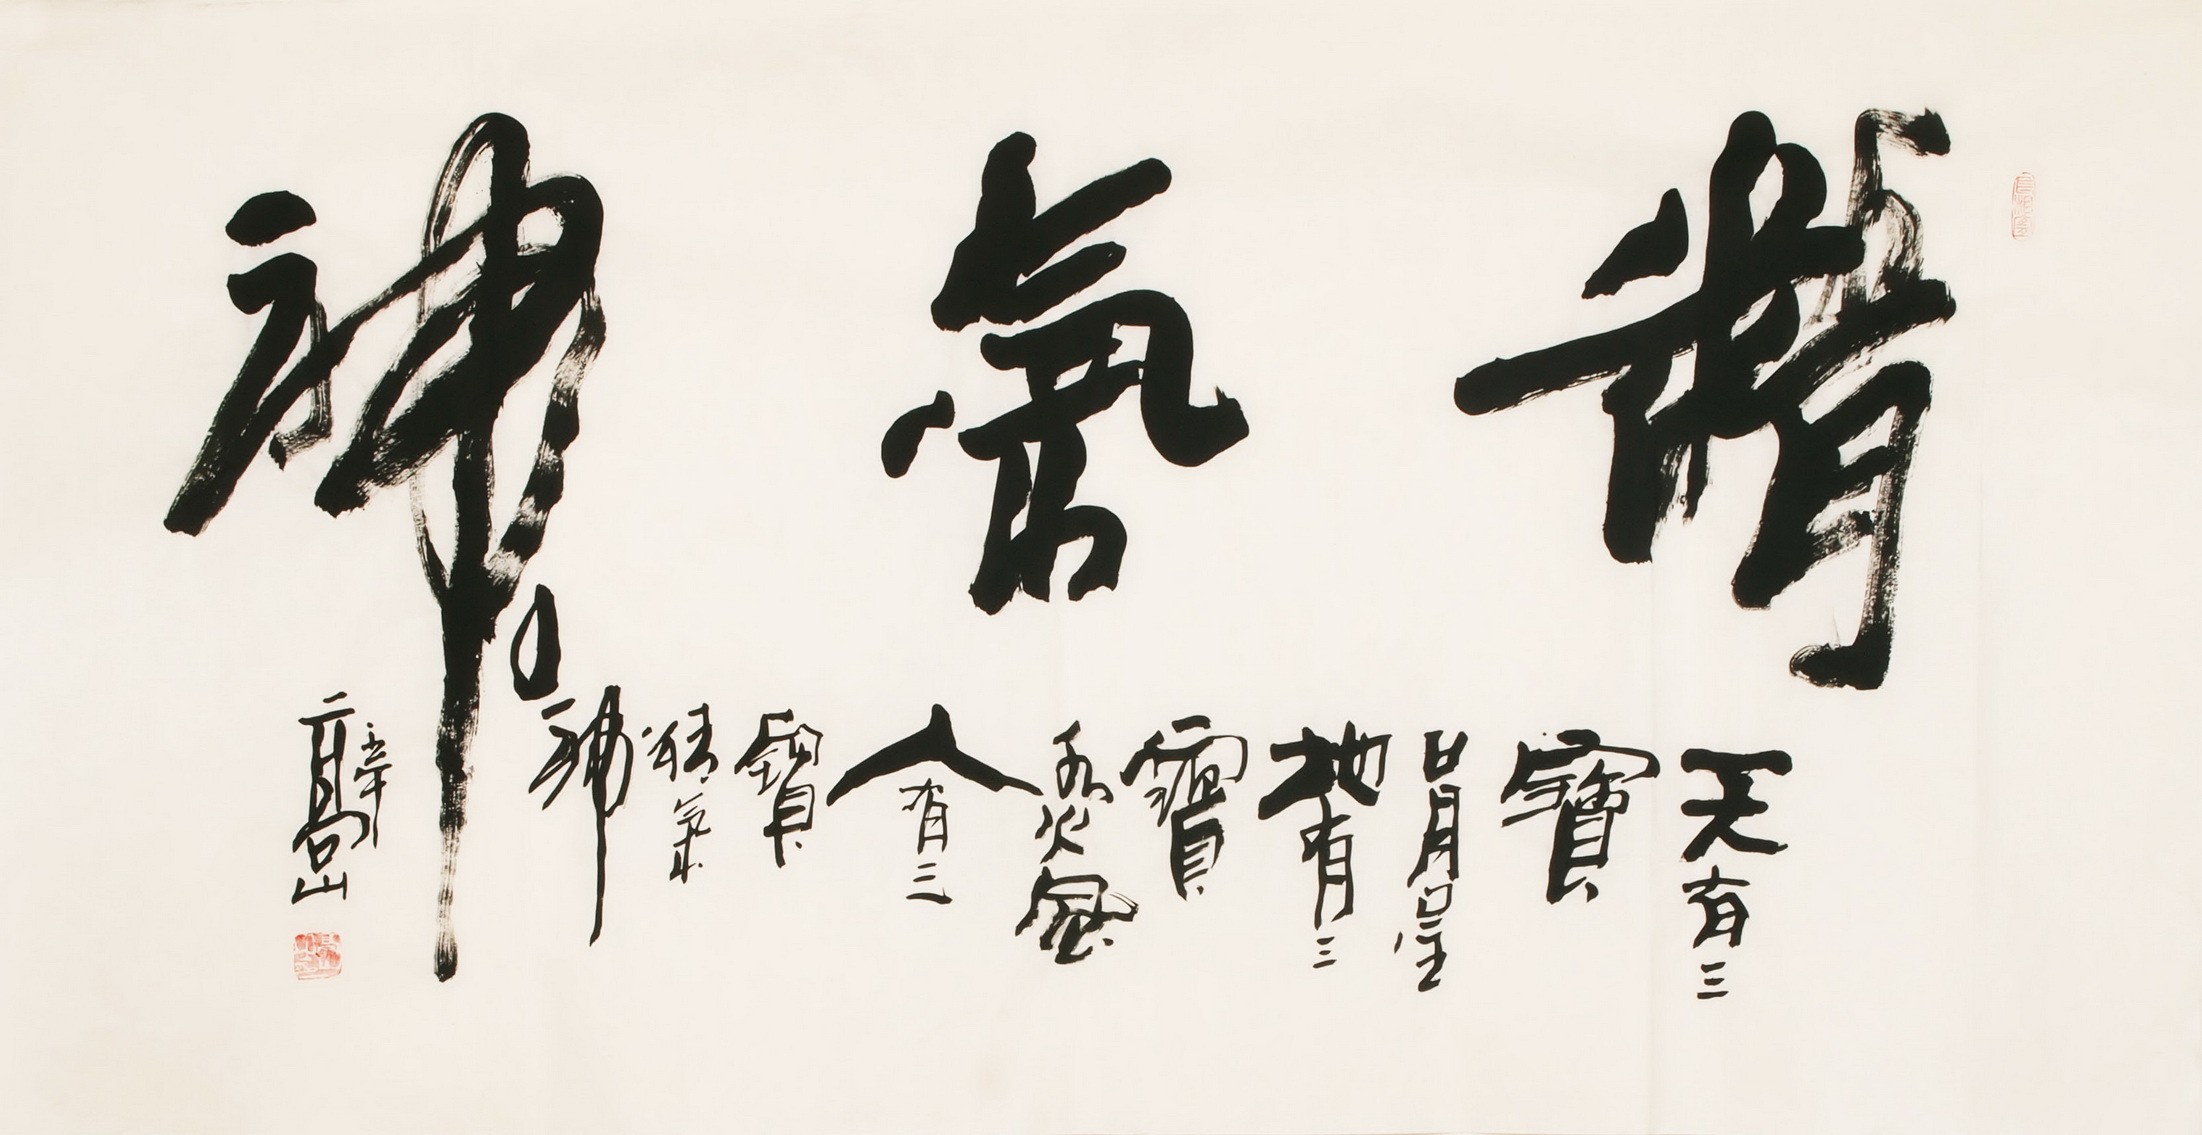 精氣神
天有三
寶
日月星
地有三
寶
水火風
人有三
寶
精氣
神
高山